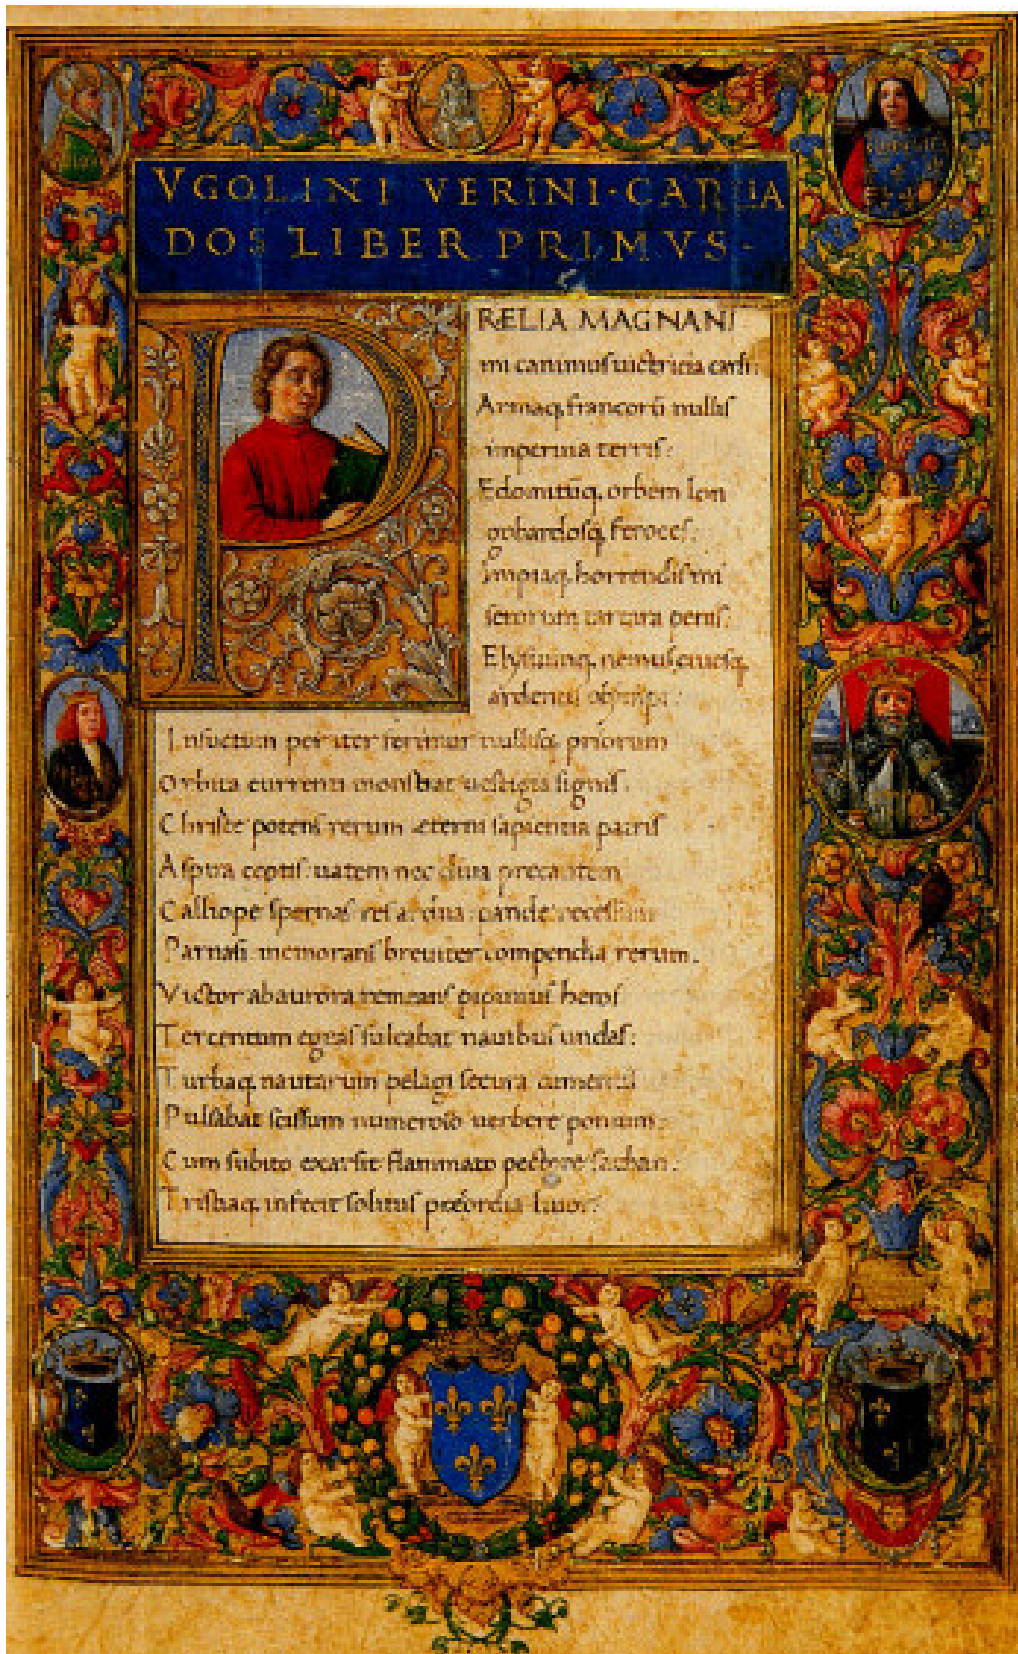 VGOLINI VERINI·CARLIA
DOS LIBER PRIMVS·
PRÆLIA MAGNANI
mi canimus uictricia carli:
Armaq. francorū nullis
imperuia terris:
Edomitūq. orbem lon
gobardosq. feroces:
impiaq. horrendis mi
serorum tartara penis:
Elysiumq. nemus ciuesq.
ardentis olympi:
Insuetum per iter ferimur nullisq. priorum
Orbita currenti monstrat uestigia signis.
Christe potens rerum æterni sapientia patris
Aspira ceptis: uatem nec diua precantem
Calliope spernas: reserα diua: pande
Parnasi: memorans breuiter compendia rerum.
Victor ab aurora remeans pipinius heros
Tercentum egeas sulcabat nauibus undas:
Turbaq. nautarum pelagi secura
Pulsabat scissum numeroso uerbere pontum:
Cum subito exarsit flammato pectore sathan:
Tristiaq. infecit solitus precordia liuor: